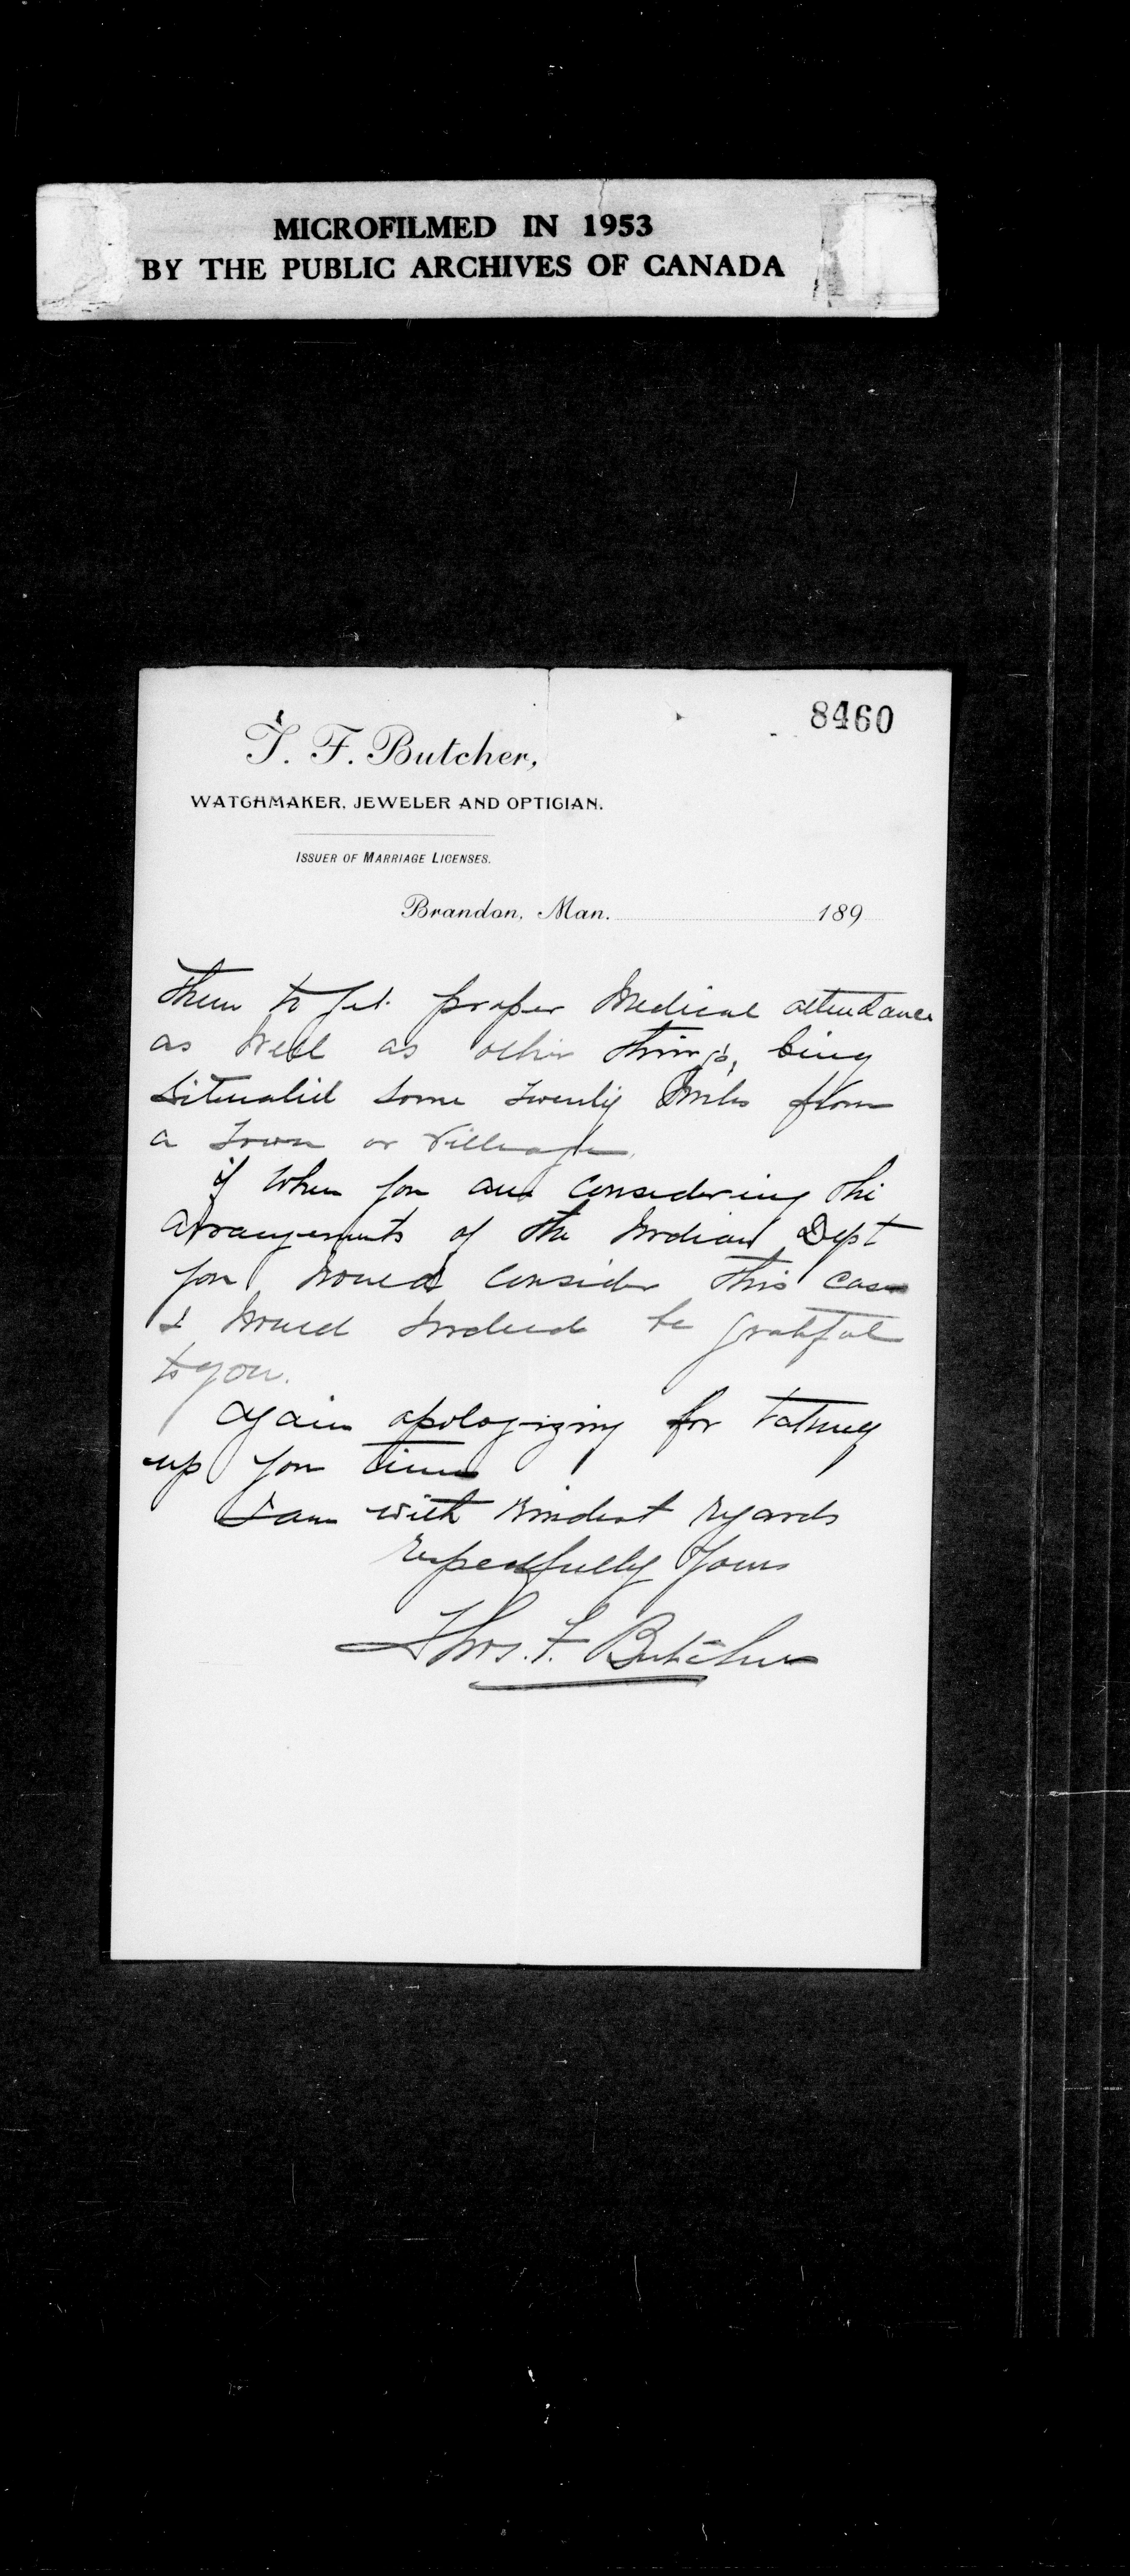 MICROFILMED IN 1953
BY THE PUBLIC ARCHIVES OF CANADA
8460
T. F. Butcher,
WATCHMAKER, JEWELER AND OPTICIAN.
ISSUER OF MARRIAGE LICENSES.
Brandon, Man. 189
them to get proper Medical attendance
as well as other things, being
situated some twenty miles from
a Town or Village.
if when you are considering the
Arrangements of the Indian Dept
you would consider this case
I would indeed be grateful
to you.
Again apologizing for taking
up you time
I am with kindest regards
respectfully yours
Thos. F. Butcher